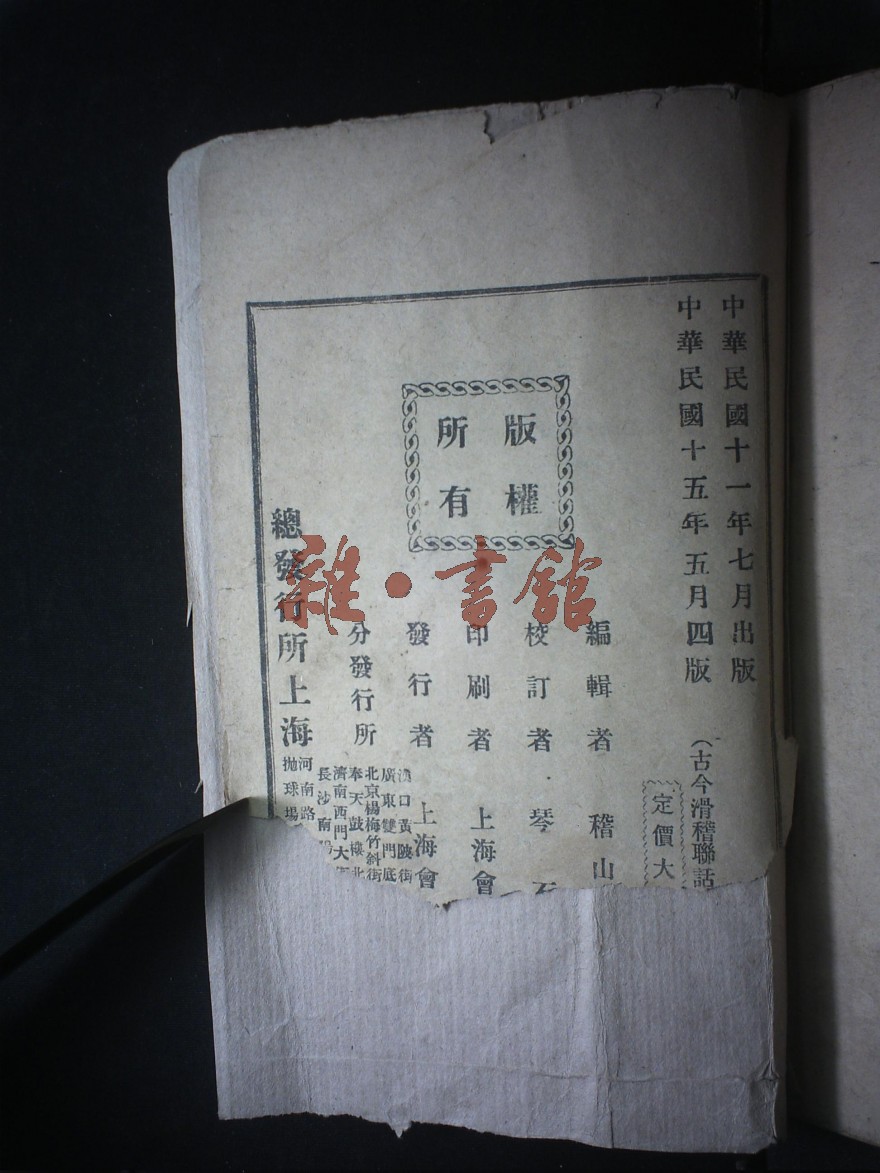 中華民國十一年七月出版
中華民國十五年五月四版
(古今滑稽聯話
定價大
版權
所有
編輯者 稽山
校訂者 琴石
印刷者 上海會
發行者 上海會
分發行所
漢口黃陂街
廣東雙門底
北京楊梅竹斜街
奉天鼓樓北
濟南西門大
長沙南
總發行所上海
河南路
拋球場
雜·書館